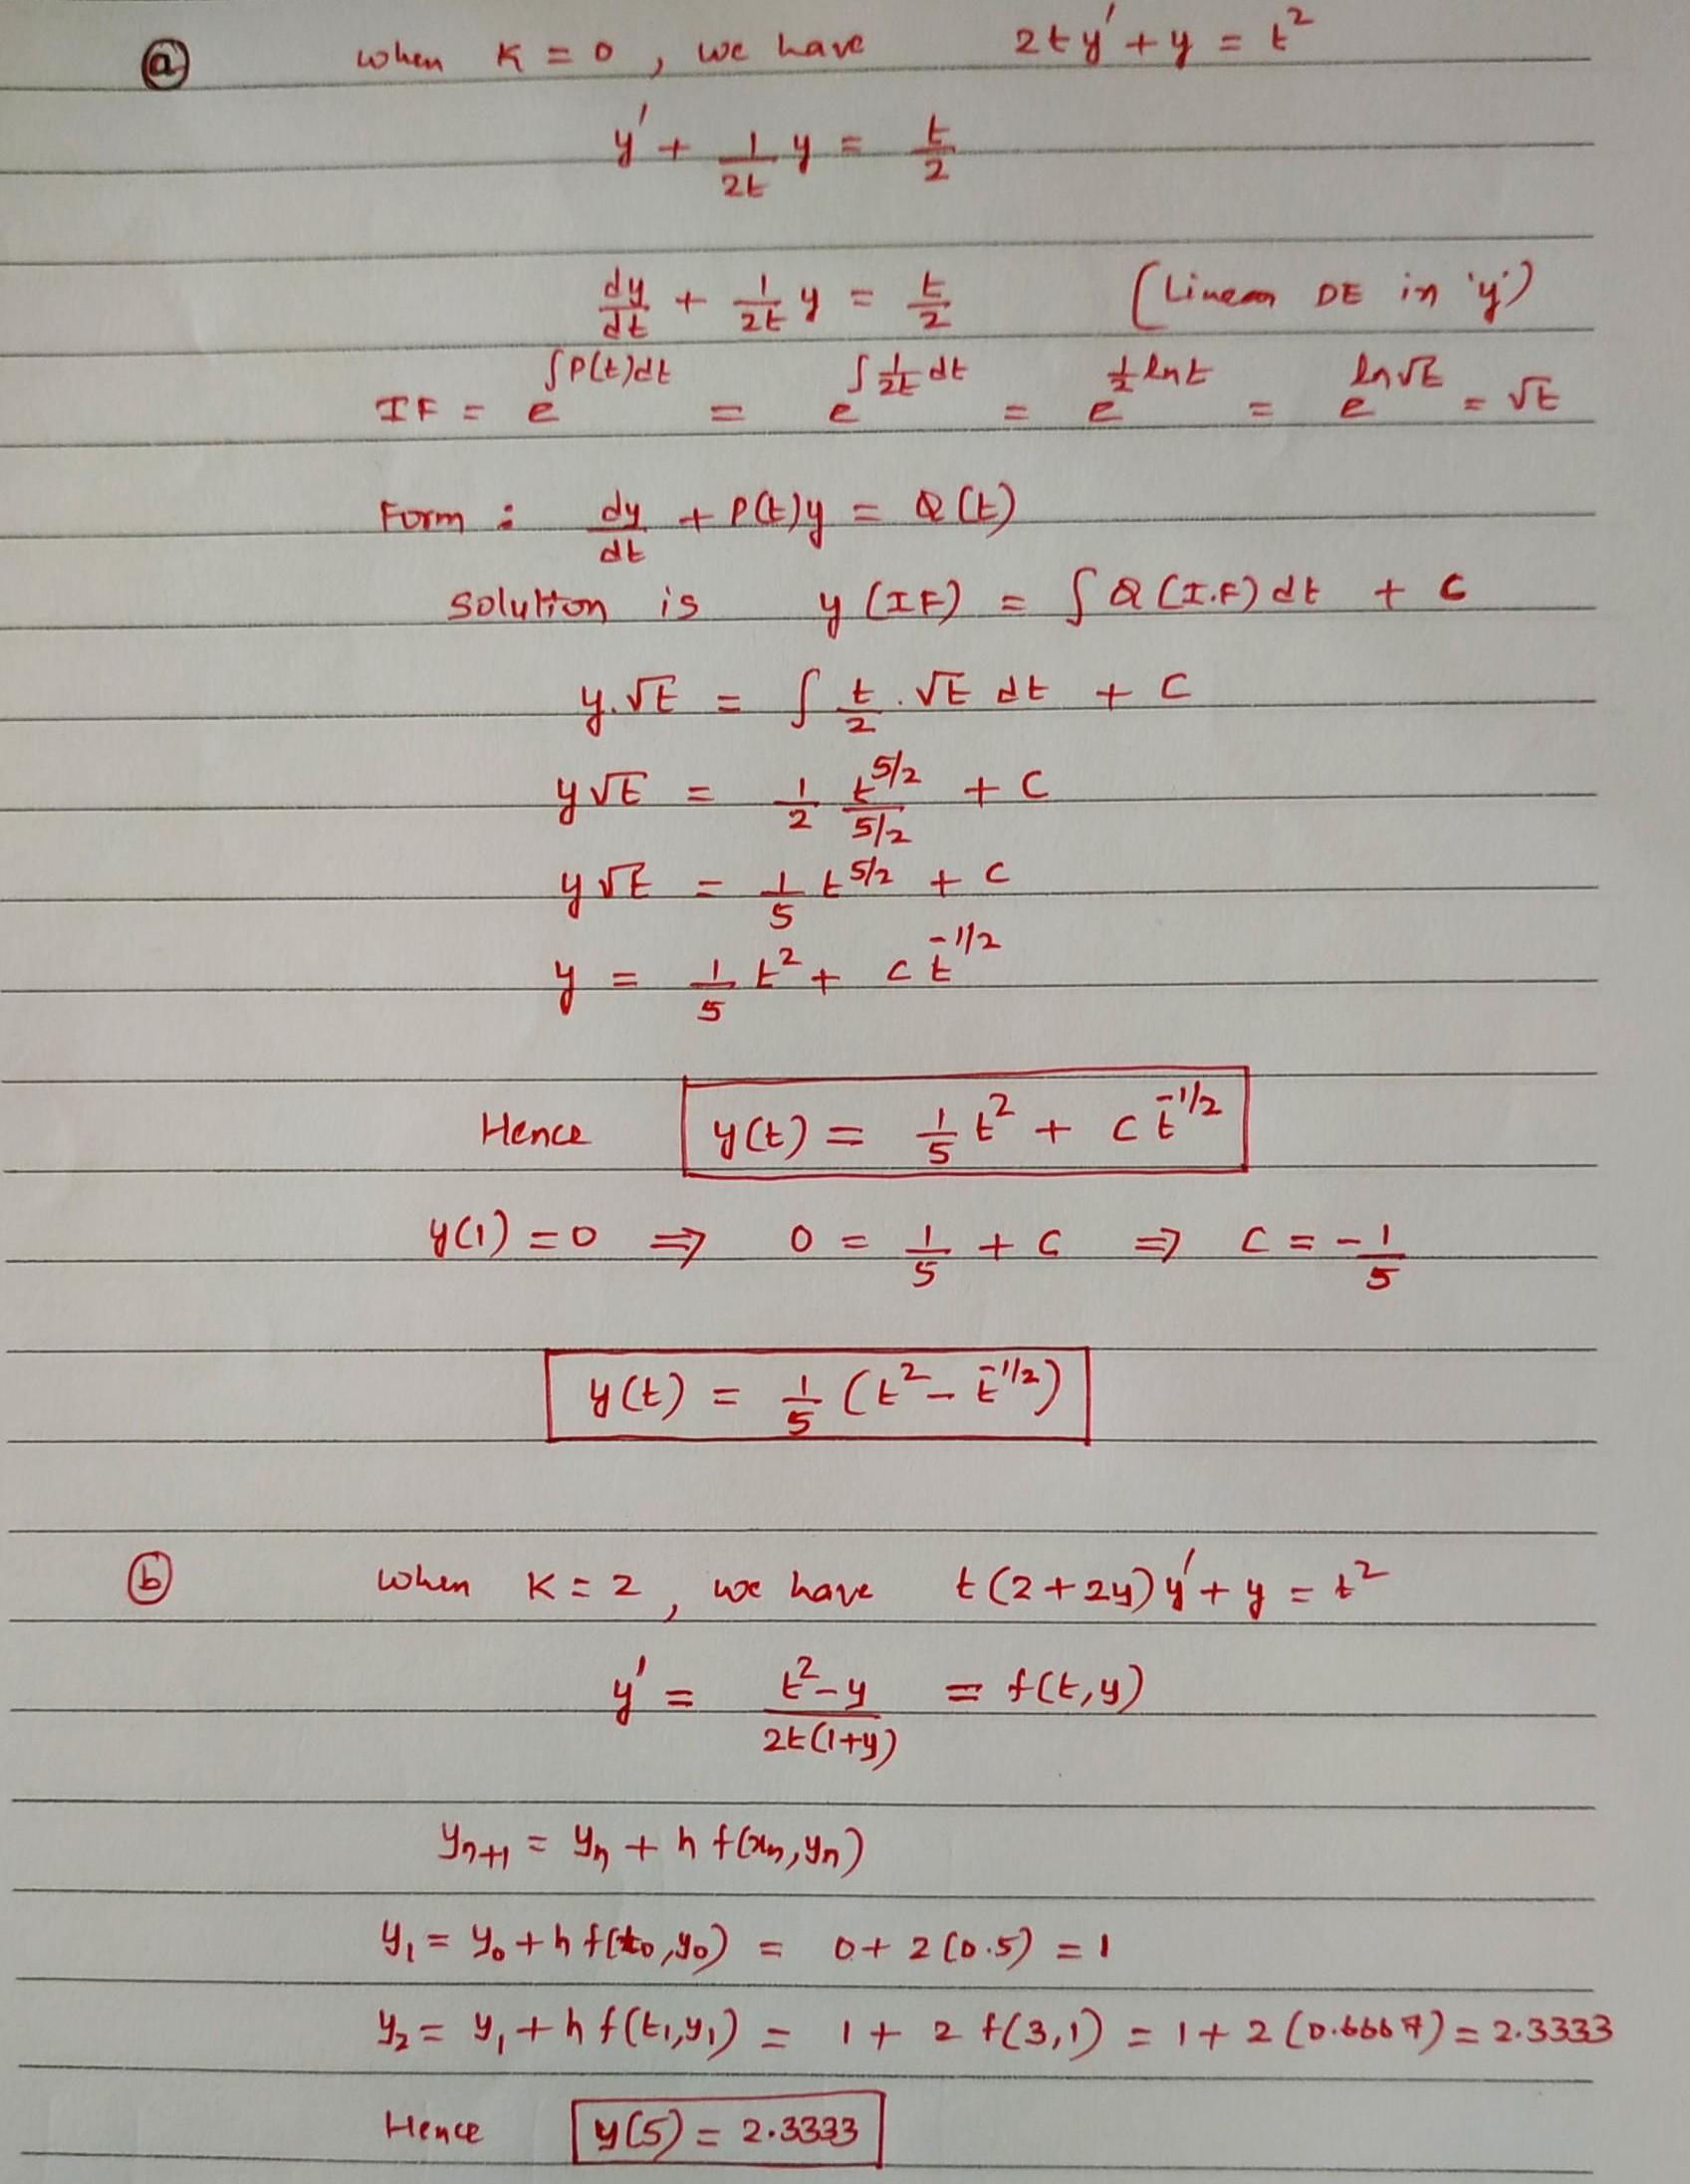 (a) when K = 0, we have 2ty' + y = t²
y' + 1/2t y = t/2
dy/dt + 1/2t y = t/2 (Linear DE in 'y')
IF = e^∫P(t)dt = e^∫1/2t dt = e^½ ln t = e^ln√t = √t
Form : dy/dt + P(t)y = Q(t)
solution is y (IF) = ∫ Q (I.F) dt + C
y.√t = ∫ t/2 . √t dt + C
y√t = 1/2 t^5/2 / 5/2 + C
y√t = 1/5 t^5/2 + C
y = 1/5 t² + c t^-1/2
Hence y(t) = 1/5 t² + c t^-1/2
y(1) = 0 ⇒ 0 = 1/5 + C ⇒ C = -1/5
y(t) = 1/5 (t² - t^-1/2)
(b) when K = 2, we have t(2+2y)y' + y = t²
y' = t²-y / 2t(1+y) = f(t,y)
yₙ₊₁ = yₙ + h f(xₙ,yₙ)
y₁ = y₀ + h f(t₀,y₀) = 0 + 2(0.5) = 1
y₂ = y₁ + h f(t₁,y₁) = 1 + 2 f(3,1) = 1 + 2(0.6667) = 2.3333
Hence y(5) = 2.3333